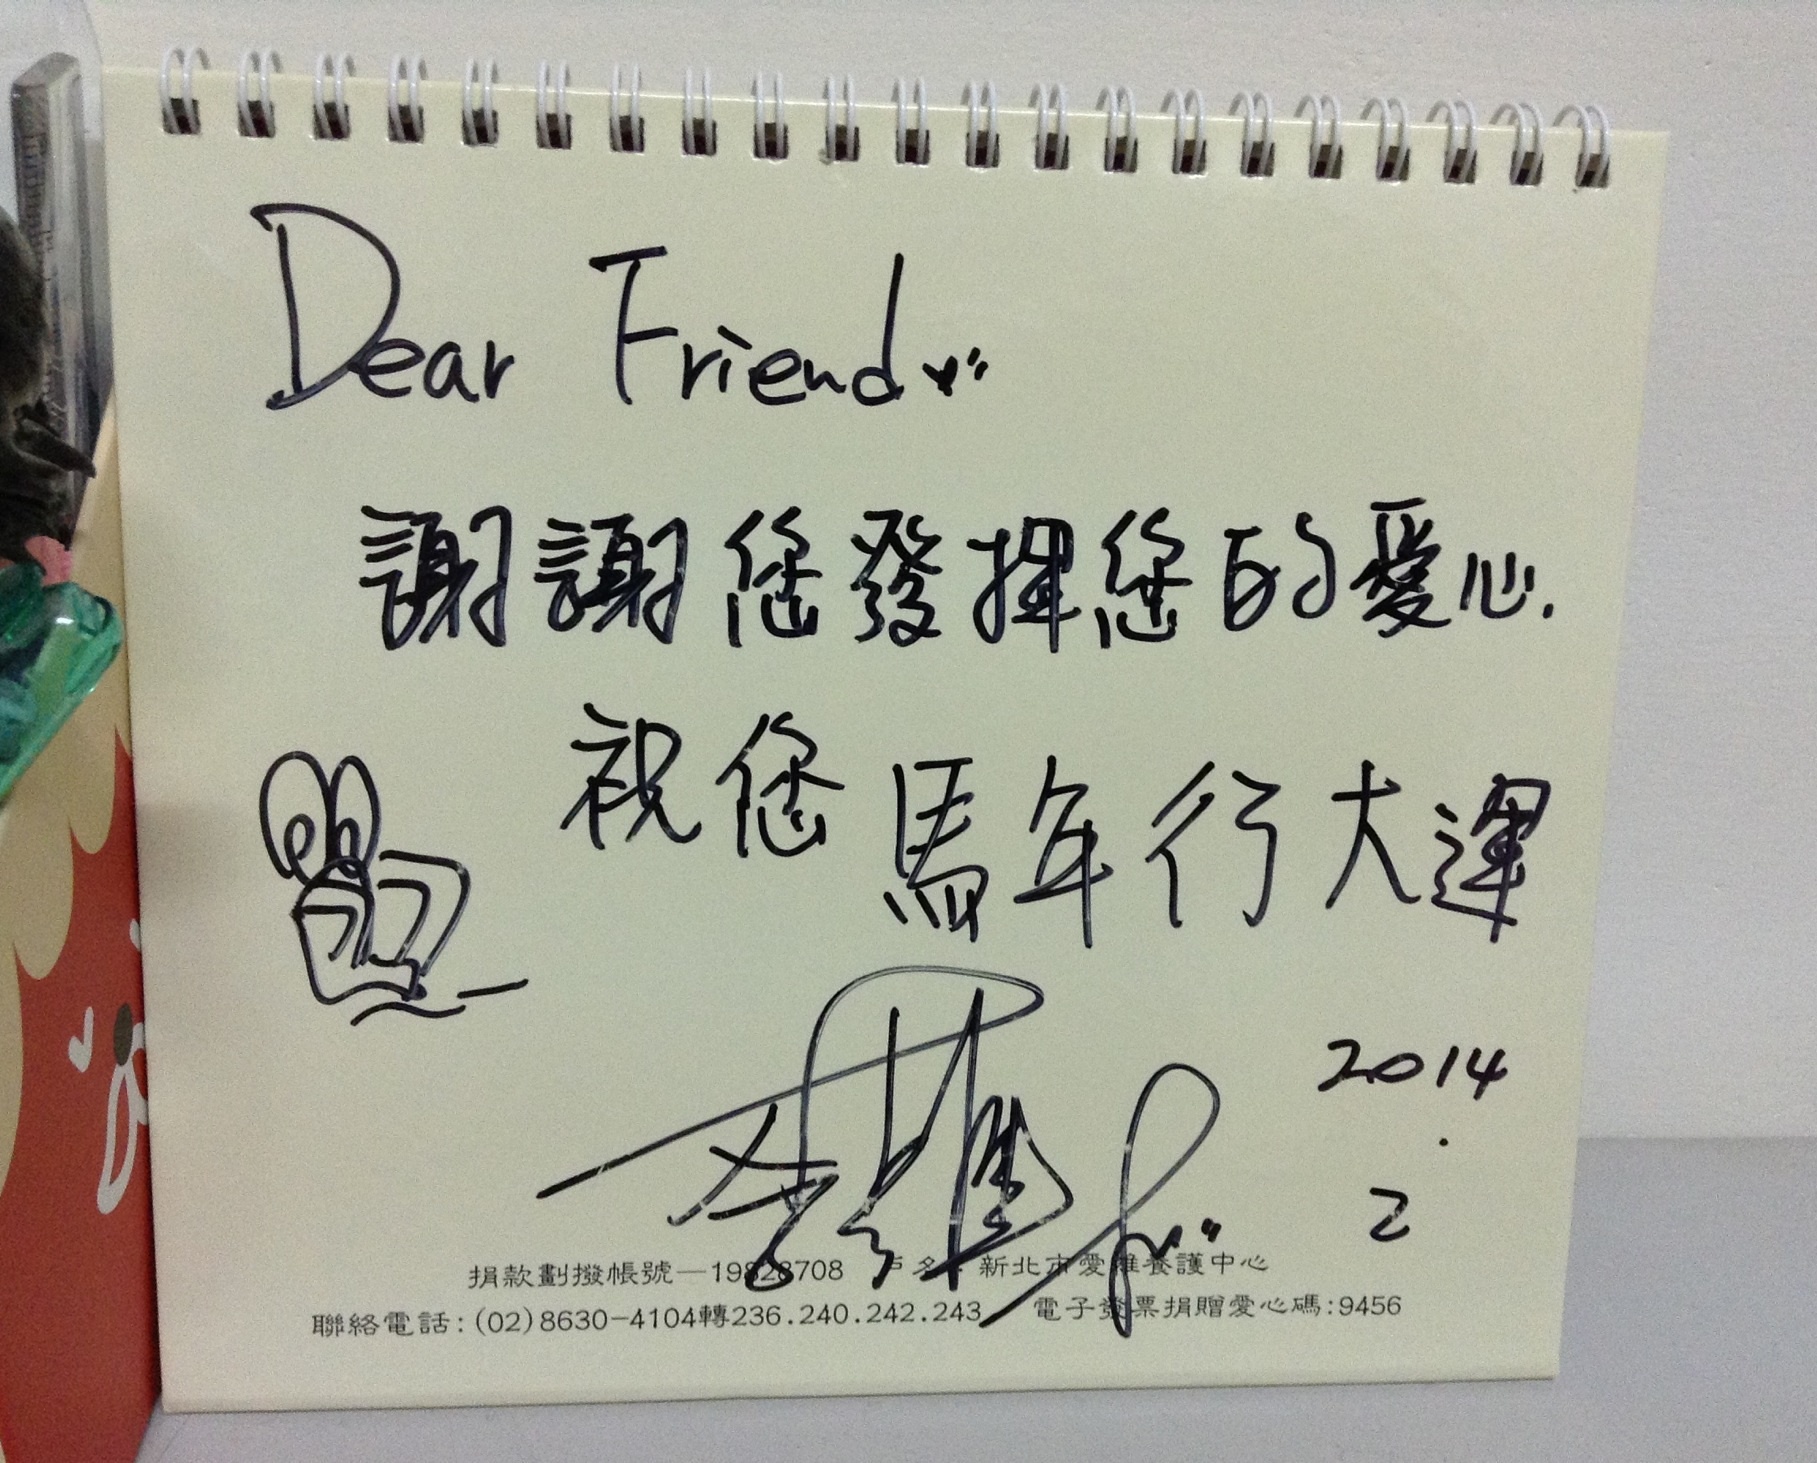 Dear Friend
謝謝您發揮您的愛心.
祝您馬年行大運
2014
.
2
捐款劃撥帳號—19828708 戶名:新北市愛維養護中心
聯絡電話:(02)8630-4104轉236.240.242.243 電子發票捐贈愛心碼:9456